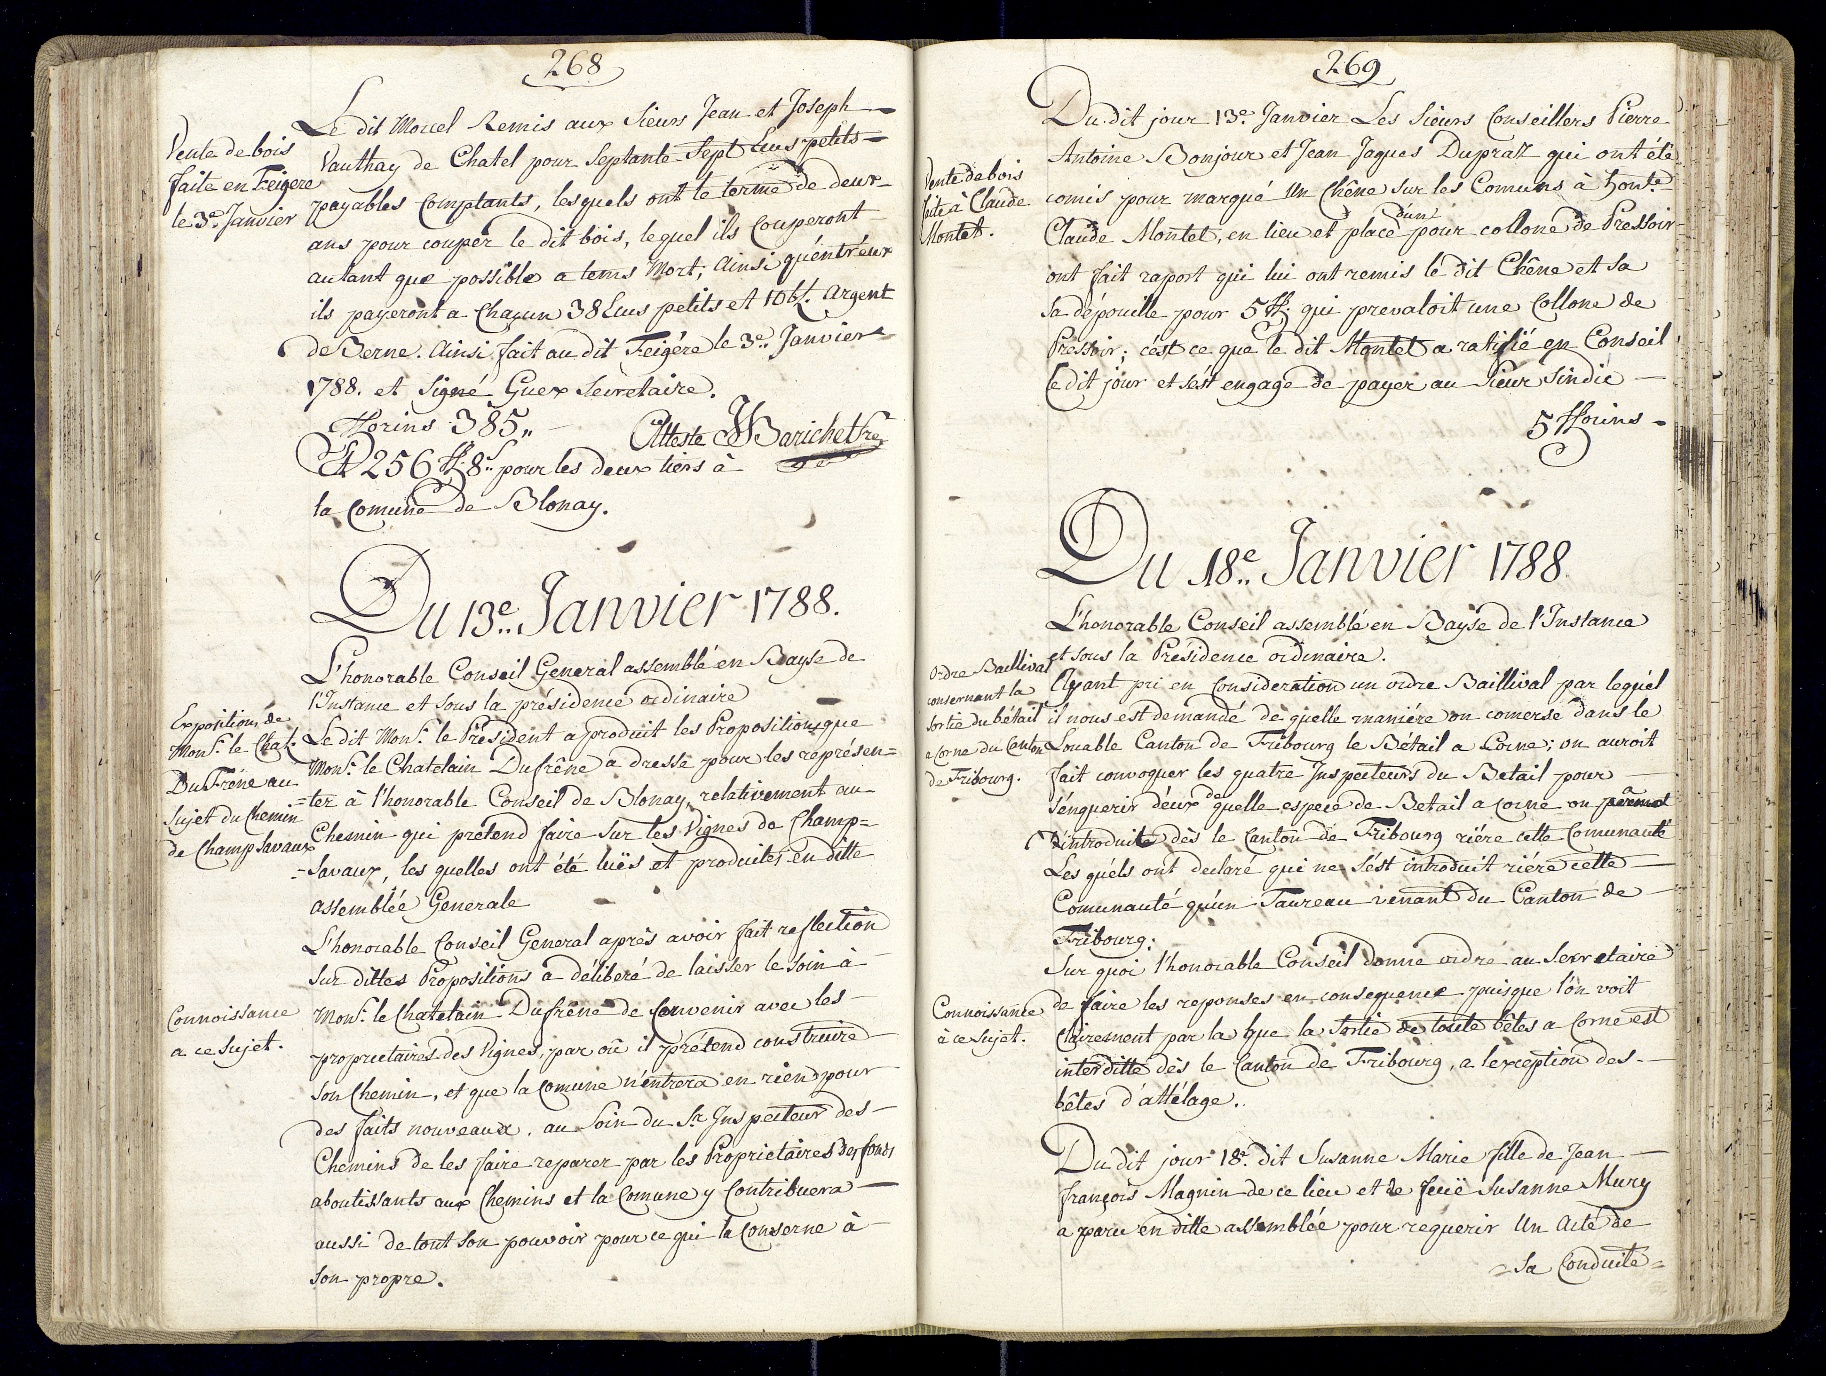 268
Le dit Morcel Remis aux Sieurs Jean et Joseph
Vente de bois
faite en Feigere
le 3e. Janvier
Vauthay de Chatel pour Septante Sept Ecus petits
payables Comptants, lesquels ont le terme de deux
ans pour couper le dit bois, lequel ils Couperont
autant que possible a tems Mort; Ainsi qu'entr'eux
ils payeront a Chacun 38 Ecus petits et 10 bz. Argent
de Berne. Ainsi fait au dit Feigére le 3e. Janvier
1788. et Signé Guex Secretaire.
Florins 385,,
Atteste Barichet
256 ff. 8 s. pour les deux tiers à
la Comune de Blonay.
Du 13e. Janvier 1788.
L'honorable Conseil General assemblé en Bayse de
l'Instance et sous la présidence ordinaire
Exposition de
Monsr. le Chat.
Du Frêne au
Sujet du Chemin
de Champ Savaux
Le dit Monsr. le Président a produit les Propositions que
Monsr. le Chatelain Dufrêne a dressé pour les représen=
=ter à l'honorable Conseil de Blonay, relativement au
Chemin qui prétend faire sur les Vignes de Champ=
=Savaux, les quelles ont été luës et produites en ditte
assemblée Generale
L'honorable Conseil General après avoir fait reflection
sur dittes Propositions a déliberé de laisser le soin à
Connoissance
a ce Sujet.
Monsr. le Chatelain Dufrêne de Convenir avec les
proprietaires des Vignes, par où il prétend construire
son Chemin, et que la Comune n'entrera en rien pour
des faits nouveaux, au Soin du Sr. Inspecteur des
Chemins de les faire reparer par les Proprietaires des fonds
aboutissants aux Chemins et la Comune y Contribuera
aussi de tout son pouvoir pour ce qui la Conserne à
son propre.
269
Du dit jour 13e. Janvier Les Sieurs Conseillers Pierre
Vente de bois
faite à Claude
Montet.
Antoine Bonjour et Jean Jaques Dupraz qui ont été
comis pour marqué Un Chêne sur les Comuns à honte.
Claude Montet, en lieu et place d'un pour collone de Pressoir
ont fait raport qui lui ont remis le dit Chêne et sa
sa dépouille pour 5 ff. qui prevaloit une Collone de
Pressoir; c'est ce que le dit Montet a ratifié en Conseil
le dit jour et s'est engagé de payer au Sieur Sindic
5 fflorins
Du 18e. Janvier 1788.
L'honorable Conseil assemblé en Bayse de l'Instance
et sous la Présidence ordinaire.
Ordre Baillival
consernant la
Sortie du bétail
a Corne du Canton
de Fribourg.
Ayant pri en Consideration un ordre Baillival par lequel
il nous est demandé de quelle maniére on comerse dans le
Louable Canton de Fribourg le Bétail a Corne; on auroit
fait convoquer les quatre Inspecteurs du Betail pour
s'enquerir d'eux de quelle espece de Betail a corne on permet
d'introduite dès le Canton de Fribourg riére cette Comunauté
Les quels ont declaré qui ne s'est introduit riére cette
Comunauté qu'un Taureau venant du Canton de
Fribourg.
Sur quoi l'honorable Conseil donne ordre au Secretaire
Connoissance
à ce Sujet.
de faire les reponses en consequence puisque l'on voit
Clairement par la que la Sortie de toute bêtes a Corne est
interditte dès le Canton de Fribourg, a l'exception des
bêtes d'attélage.
Du dit jour 18e. dit Susanne Marie fille de Jean
françois Magnin de ce lieu et de feuë Susanne Mury
a paru en ditte assemblée pour requerir Un Acte de
=Sa Conduite=